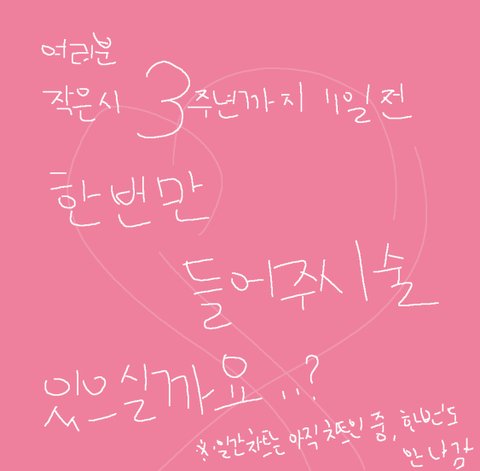 여러분
작은시 3주년까지 11일 전
한번만
들어주시술
있으실까요...?
※일간차트는 아직 차트인 중, 한번도
안 나감